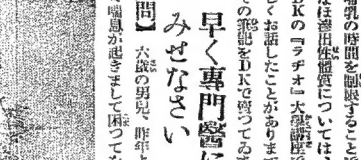 哺乳の時間を制限すること
なほ滲出性體質については、
DKの『ラヂオ』大衆講座で
くお話したことがありまず
その筆記をDKで賣つてゐま
早く專門醫に
みせなさい
問】 六歳の男兒、昨年
喘息が起きまして困つてな